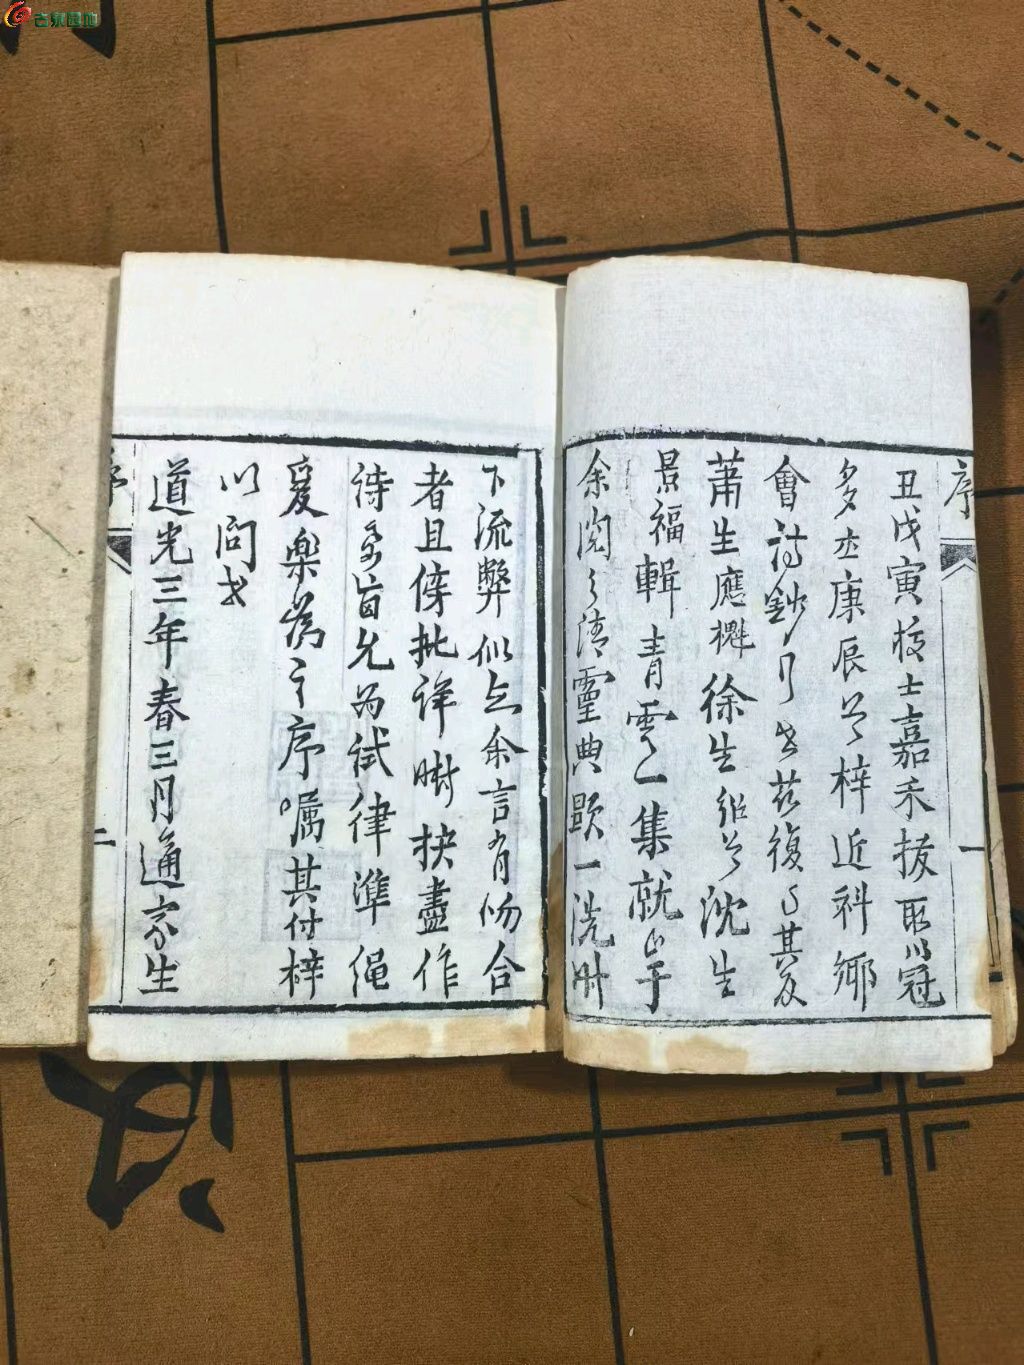 古泉园地
序
丑戊寅校士嘉禾拔取以冠
多士庚辰公梓近科鄉
會詩鈔行世茲復與其友
蕭生應樾徐生紹公沈生
景福輯青雲一集就正于
余閱之清靈典顯一洗時
一
下流弊似与余言有吻合
者且傍批詳晰抉盡作
詩之旨允为試律準繩
爰樂為之序囑其付梓
以問世
道光三年春三月通家生
序
二